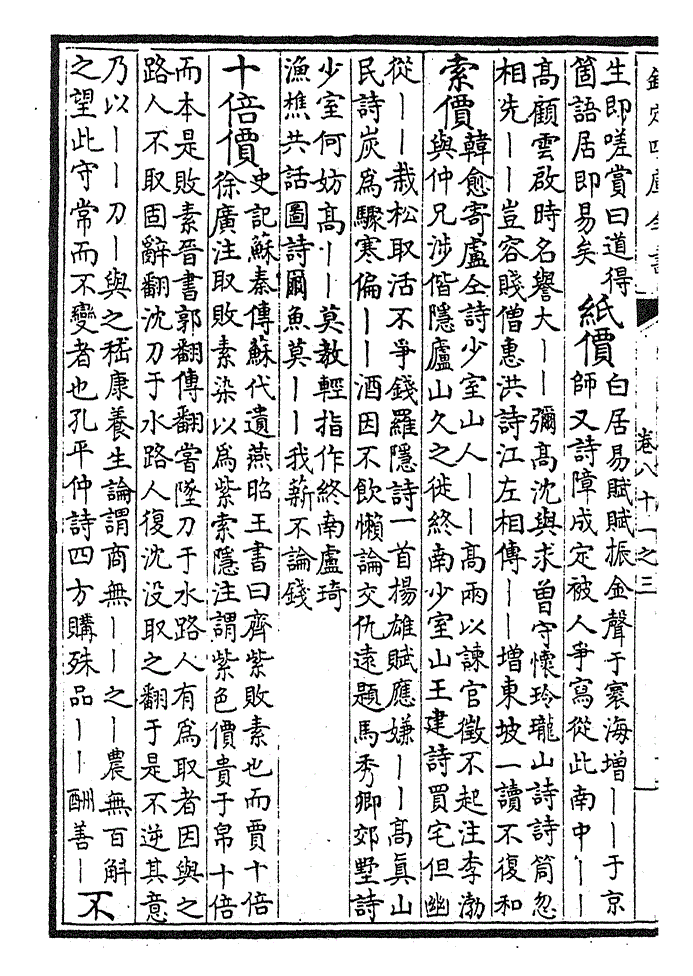 欽定四庫全書
卷八十一之三
生即嗟賞曰道得
箇語居即易矣
紙價
白居易賦賦振金聲于寰海增丨丨于京
師又詩障成定被人爭寫從此南中丨丨
高顧雲啟時名譽大丨丨彌高沈與求曾守懷玲瓏山詩詩筒忽
相先丨丨豈容賤僧惠洪詩江左相傳丨丨增東坡一讀不復和
索價
韓愈寄盧仝詩少室山人丨丨高兩以諫官徵不起注李渤
與仲兄涉偕隱廬山久之徙終南少室山王建詩買宅但幽
從丨丨栽松取活不爭錢羅隱詩一首揚雄賦應嫌丨丨高真山
民詩炭為驟寒偏丨丨酒因不飲懶論交仇遠題馬秀卿郊墅詩
少室何妨高丨丨莫教輕指作終南盧琦
漁樵共話圖詩爾魚莫丨丨我薪不論錢
十倍價
史記蘇秦傳蘇代遺燕昭王書曰齊紫敗素也而賈十倍
徐廣注取敗素染以為紫索隱注謂紫色價貴于帛十倍
而本是敗素晉書郭翻傳翻嘗墜刀于水路人有為取者因與之
路人不取固辭翻沈刀于水路人復沈沒取之翻于是不逆其意
乃以丨丨刀丨與之嵇康養生論謂商無丨丨之丨農無百斛
之望此守常而不變者也孔平仲詩四方購殊品丨丨酬善丨
不